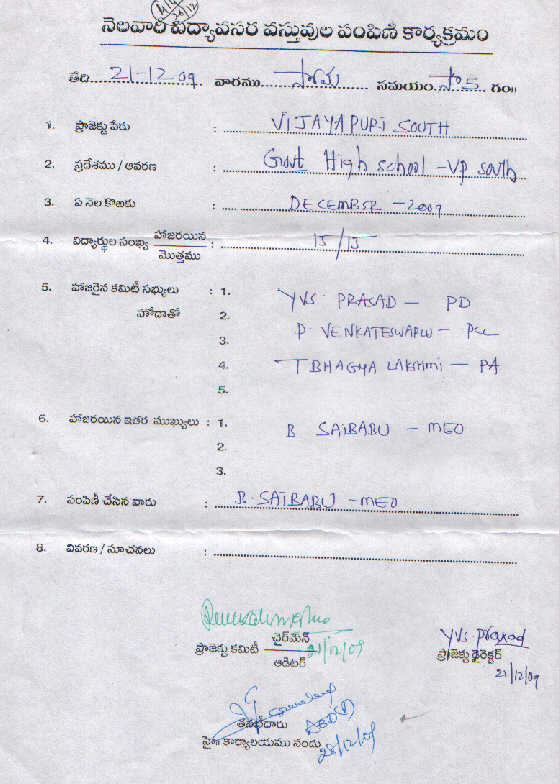 నెలవారీ విద్యావసర వస్తువుల పంపిణీ కార్యక్రమం
తేది 21-12-09 వారము సోమ సమయం సా 5 గం॥
1. ప్రాజెక్టు పేరు : VIJAYAPURI SOUTH
2. ప్రదేశము / ఆవరణ : Govt High school - VP south
3. ఏ నెల కొఱకు : DECEMBER - 2009
4. విద్యార్థుల సంఖ్య హాజరయిన / మొత్తము : 15/15
5. హాజరైన కమిటీ సభ్యులు : 1. YVS. PRASAD - PD
హోదాతో 2.
P. VENKATESWARLU - PCC
3.
4. T BHAGYA LAKSHMI - PA
5.
6. హాజరయిన ఇతర ముఖ్యులు : 1. B SAIBABU - MEO
2.
3.
7. పంపిణీ చేసిన వారు : B. SAIBABU - MEO
8. వివరణ / సూచనలు :
ప్రాజెక్టు కమిటీ చైర్‌మేన్ / ఆడిటర్ 21/12/09
YVS. Prasad
ప్రాజెక్టు డైరెక్టర్
21/12/09
తనిఖీదారు
హైణ కార్యాలయము నందు 28/12/09